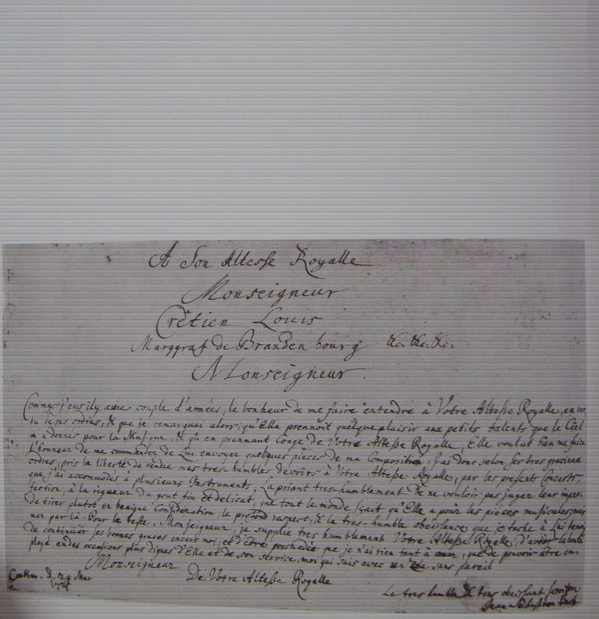 A Son Altesse Royalle
Monseigneur
Crêtien Louis
Marggraf de Brandenbourg &c. &c. &c.
Monseigneur
Comme j'eus il y a une couple d'années, le bonheur de me faire entendre à Votre Altesse Royalle, en ver-
tu de ses ordres, & que je remarquai alors, qu'Elle prennoit quelque plaisir aux petits talents que le Ciel
m'a donnés pour la Musique, & qu'en prennant Conge de Votre Altesse Royalle, Elle voulut bien me faire
l'honneur de me commander de Lui envoyer quelques pieces de ma Composition: j'ai donc selon ses tres gracieux
ordres, pris la liberté de rendre mes tres-humbles devoirs à Votre Altesse Royalle, par les presents Concerts,
que j'ai accommodés à plusieurs Instruments; La priant tres-humblement de ne vouloir pas juger leur imper-
fection, à la rigueur du gout fin et delicat, que tout le monde sçait qu'Elle a pour les pièces musicales; mais
de tirer plutot en benigne Consideration, le profond respect, & la tres-humble obeissance que je tache à Lui temoig-
ner par là. Pour le reste, Monseigneur, je supplie tres humblement Votre Altesse Royalle, d'avoir la bonté
de continuer ses bonnes graces envers moi, et d'être persuadée que je n'ai rien tant à cœur, que de pouvoir être em-
ployé en des occasions plus dignes d'Elle et de son service, moi qui suis avec un zele sans pareil
Monseigneur
De Votre Altesse Royalle
Coethen. d. 24 Mar
1721
Le tres humble & tres obeissant serviteur
Jean Sebastien Bach